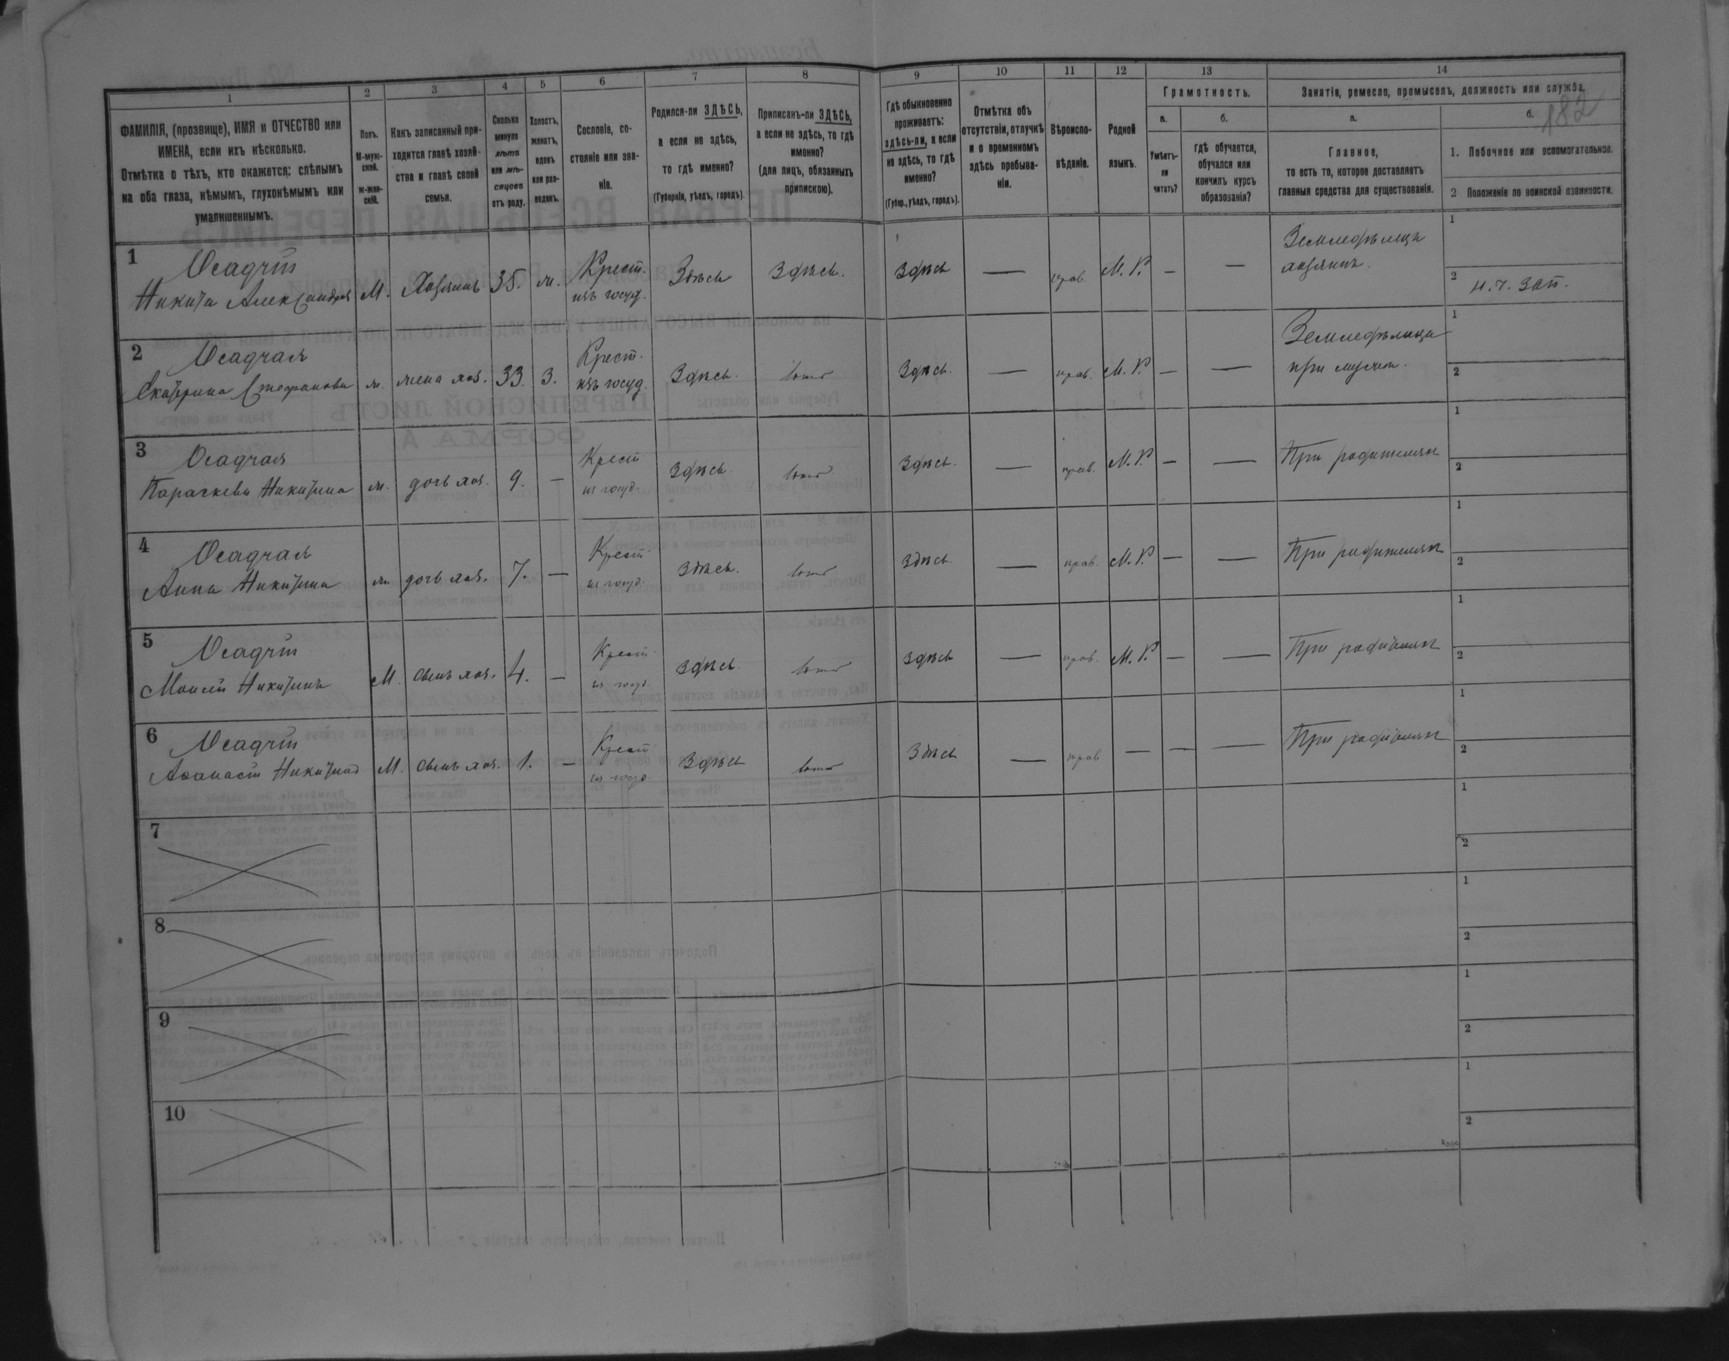 182
1 2 3 4 5 6 7 8 9 10 11 12 13 14
ФАМИЛІЯ, (прозвище), ИМЯ и ОТЧЕСТВО или
ИМЕНА, если ихъ нѣсколько.
Отмѣтка о тѣхъ, кто окажется: слѣпымъ
на оба глаза, нѣмымъ, глухонѣмымъ или
умалишеннымъ.
Полъ.
М-муж-
ской.
ж-жен-
скій.
Какъ записанный при-
ходится главѣ хозяй-
ства и главѣ своей
семьи.
Сколько
минуло
лѣтъ
или мѣ-
сяцевъ
отъ роду.
Холостъ,
женатъ,
вдовъ
или раз-
веденъ.
Сословіе, со-
стояніе или зва-
ніе.
Родился-ли ЗДѢСЬ,
а если не здѣсь,
то гдѣ именно?
(Губернія, уѣздъ, городъ).
Приписанъ-ли ЗДѢСЬ,
а если не здѣсь, то гдѣ
именно?
(для лицъ, обязанныхъ
припискою).
Гдѣ обыкновенно
проживаетъ:
здѣсь-ли, а если
не здѣсь, то гдѣ
именно?
(Губер., уѣздъ, городъ).
Отмѣтка объ
отсутствіи, отлучкѣ
и о временномъ
здѣсь пребыва-
ніи.
Вѣроиспо-
вѣданіе.
Родной
языкъ.
Грамотность.
а.
Умѣетъ-
ли
читать?
б.
гдѣ обучается,
обучался или
кончилъ курсъ
образованія?
Занятіе, ремесло, промыселъ, должность или служба.
а.
Главное,
то есть то, которое доставляетъ
главныя средства для существованія.
б.
1. Побочное или вспомогательное.
2 Положеніе по воинской повинности.
1 Осадчій Крест. Земледѣлецъ 1
Никита Александровъ М. Хозяинъ 35. ж. изъ госуд. Здѣсь Здѣсь. Здѣсь — прав. М. Р. — — хозяинъ. 2 н. ч. зап.
2 Осадчая Крест. Земледѣлица 1
Екатерина Стефанова ж. жена хоз. 33. З. изъ госуд. Здѣсь. Здѣсь. — прав. М. Р. — — при мужѣ. 2
3 Осадчая Крест 1
Параскева Никитина ж. дочь хоз. 9. — из госуд. Здѣсь Здѣсь. — прав. М. Р. — — При родителяхъ 2
4 Осадчая Крест. 1
Анна Никитина ж. дочь хоз. 7. — из госуд. Здѣсь. Здѣсь — прав. М. Р. — — При родителяхъ 2
5 Осадчій Крест. 1
Моисей Никитинъ М. сынъ хоз. 4. — из госуд. Здѣсь Здѣсь — прав. М. Р. — — При родителяхъ 2
6 Осадчій Крест. 1
Аѳанасій Никитинъ М. сынъ хоз. 1. — из госуд. Здѣсь Здѣсь — прав — — — При родителяхъ 2
7 1
2
8 1
2
9 1
2
10 1
2